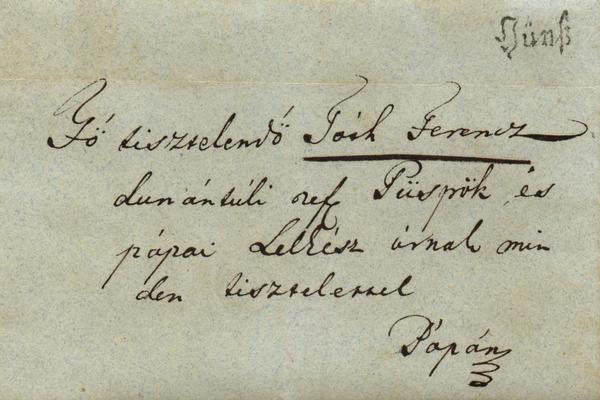 Güns
Fő tisztelendő Tóth Ferencz
dunántúli ref Püspök és
pápai Lelkész úrnak min
den tisztelettel
Pápán